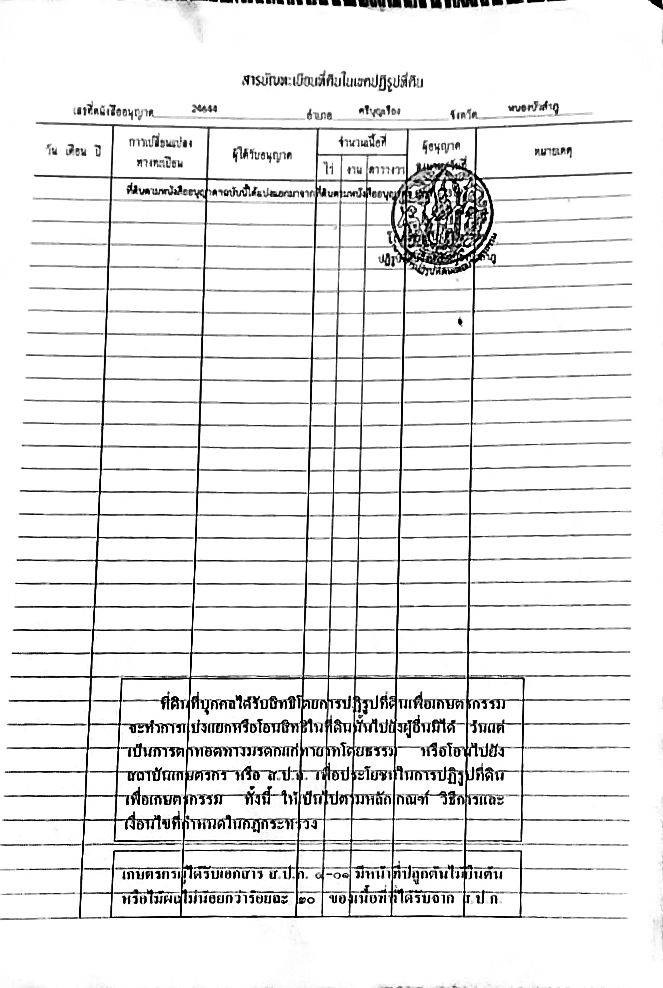 สารบัญทะเบียนที่ดินในเขตปฏิรูปที่ดิน
เลขที่หนังสืออนุญาต 24644 อำเภอ ศรีบุญเรือง จังหวัด หนองบัวลำภู
วัน เดือน ปี การเปลี่ยนแปลงทางทะเบียน ผู้ได้รับอนุญาต จำนวนเนื้อที่ ไร่ งาน ตารางวา ผู้อนุญาต หมายเหตุ
ที่ดินตามหนังสืออนุญาตฉบับนี้ได้แบ่งแยกมาจากที่ดินตามหนังสืออนุญาต
ที่ดินที่บุคคลได้รับสิทธิโดยการปฏิรูปที่ดินเพื่อเกษตรกรรม
จะทำการแบ่งแยกหรือโอนสิทธิในที่ดินนั้นไปยังผู้อื่นมิได้ เว้นแต่
เป็นการตกทอดทางมรดกแก่ทายาทโดยธรรม หรือโอนไปยัง
สถาบันเกษตรกร หรือ ส.ป.ก. เพื่อประโยชน์ในการปฏิรูปที่ดิน
เพื่อเกษตรกรรม ทั้งนี้ ให้เป็นไปตามหลักเกณฑ์ วิธีการและ
เงื่อนไขที่กำหนดในกฎกระทรวง
เกษตรกรผู้ได้รับเอกสาร ส.ป.ก. ๔-๐๑ มีหน้าที่ปลูกต้นไม้ยืนต้น
หรือไม้ผลไม่น้อยกว่าร้อยละ ๒๐ ของเนื้อที่ที่ได้รับจาก ส.ป.ก.